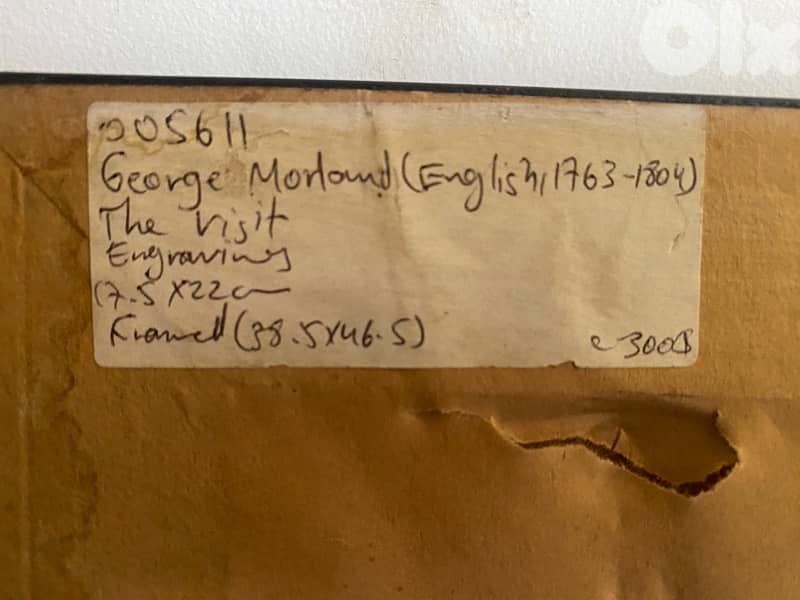 olx
005611
George Morland (English, 1763-1804)
The Visit
Engraving
17.5 X 22 cm
Framed (38.5 X 46.5)
300$